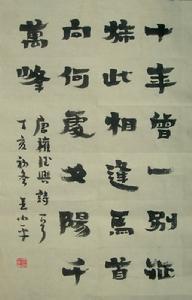 十年曾一別征
路此相逢馬首
向何處夕陽千
萬峰
唐權德輿詩一首
丁亥初冬